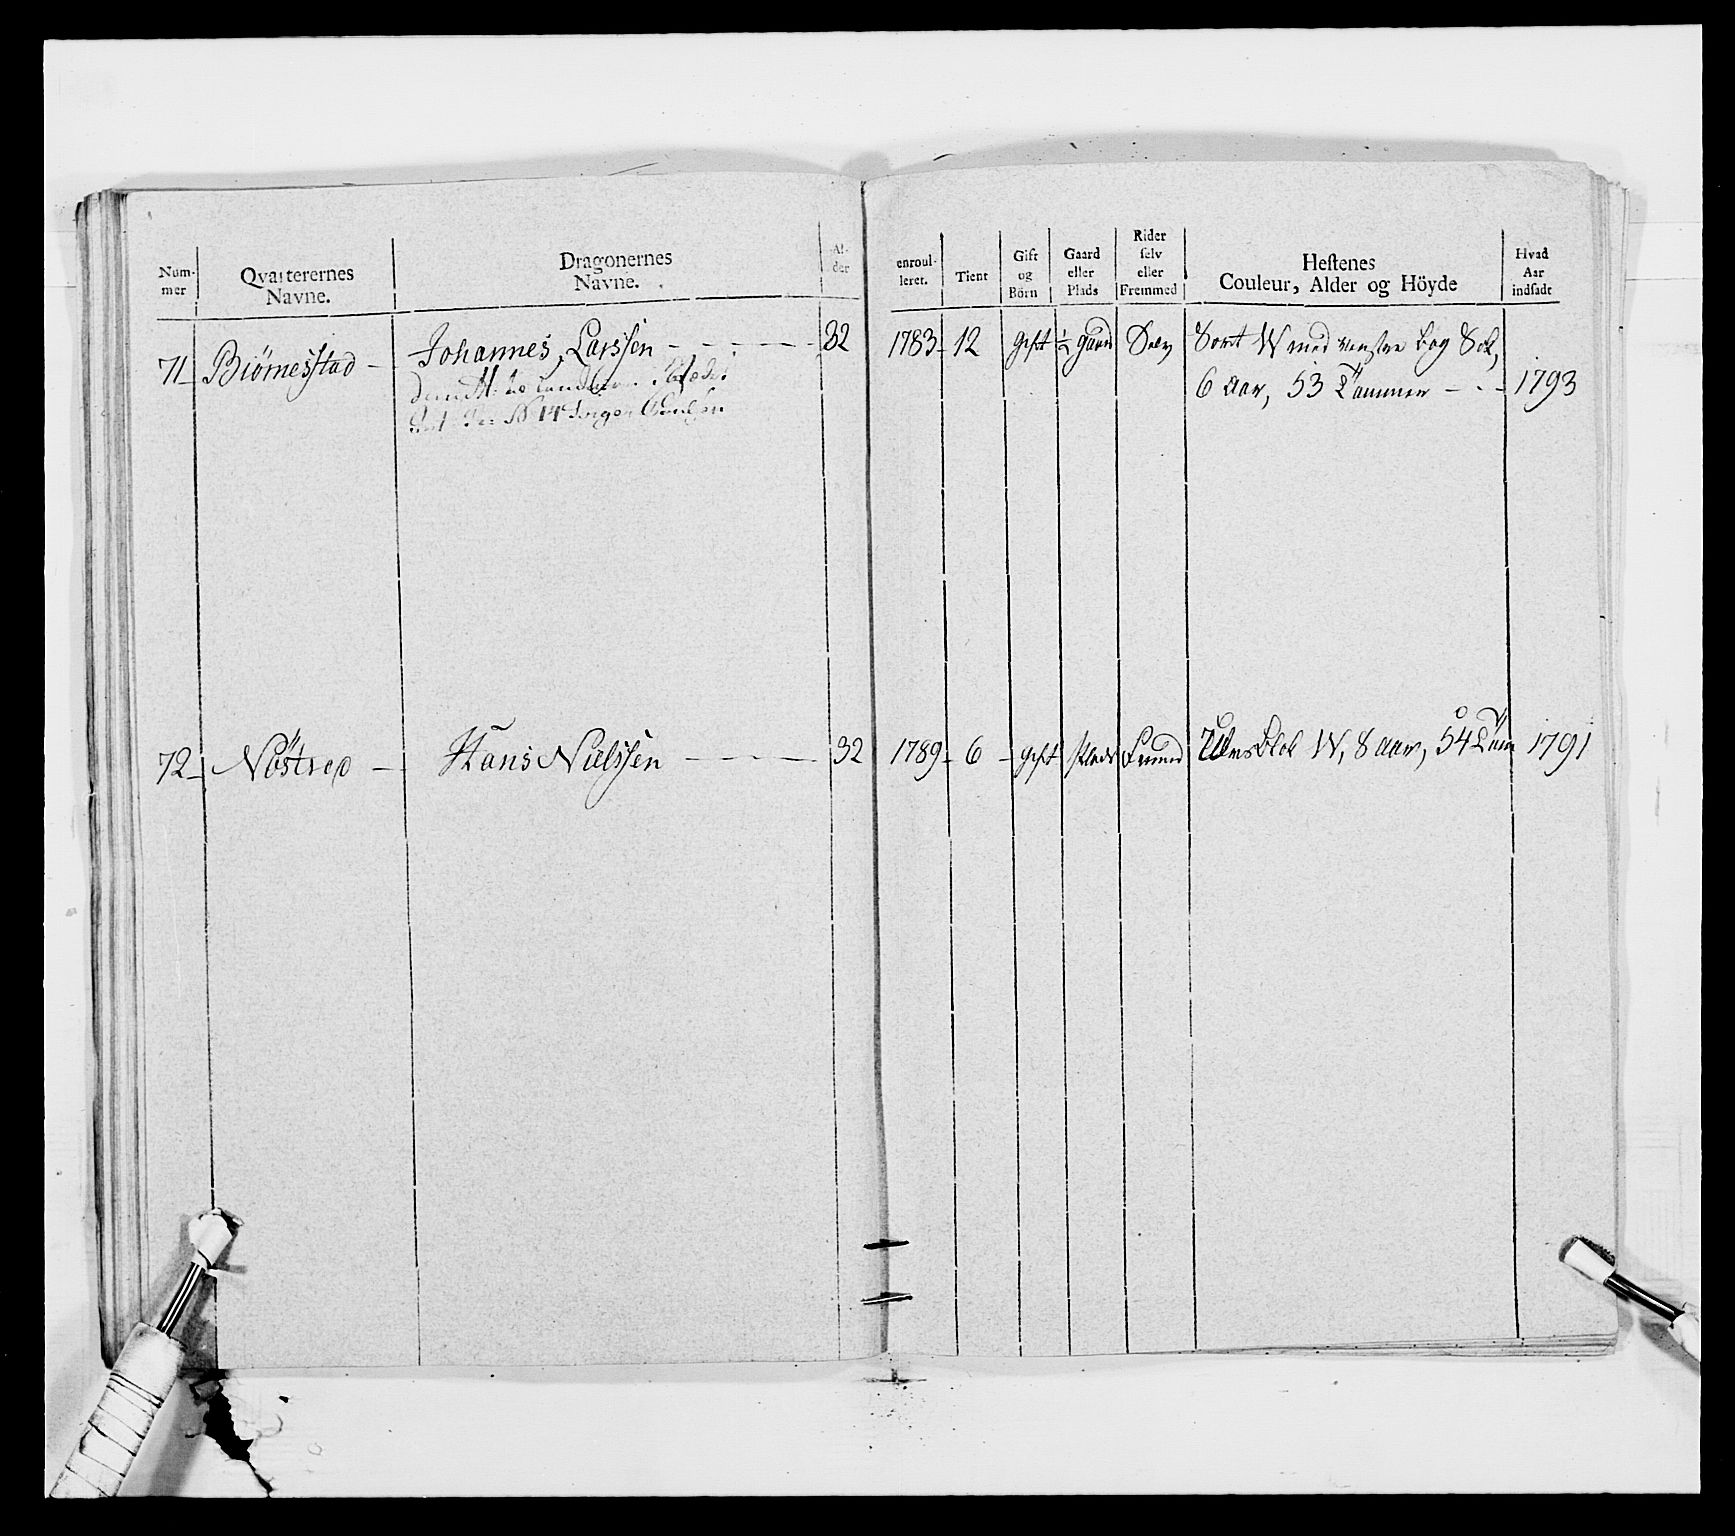 Num-
mer
Qvarterernes
Navne.
Dragonernes
Navne.
Al-
der
enroul-
leret.
Tient
Gift
og
Börn
Gaard
eller
Plads
Rider
selv
eller
Fremmed
Hestenes
Couleur, Alder og Höyde
Hvad
Aar
indsadt
71 Biörnestad Johannes Larssen 32 1783 12 gift ½ gaard Selv Sort W med venstre bag Sok,
6 Aar, 53 Tommer 1793
No 14
72 Nöstved Hans Nielssen 32 1789 6 gift Plads Fremd Ulvsblak W, 8 Aar, 54 Tom 1791